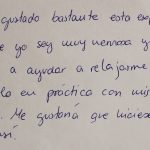 gustado bastante esta exp
e yo soy muy nerviosa y
a ayudar a relajarme
la en práctica con mis
. Me gustaría que hiciese
así.